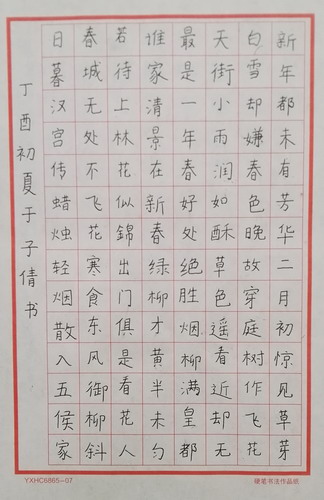 新年都未有芳华二月初惊见草芽
白雪却嫌春色晚故穿庭树作飞花
天街小雨润如酥草色遥看近却无
最是一年春好处绝胜烟柳满皇都
谁家清景在新春绿柳才黄半未匀
若待上林花似錦出门俱是看花人
春城无处不飞花寒食东风御柳斜
日暮汉宫传蜡烛轻烟散入五侯家
丁酉初夏于子倩书
YXHC6865-07
硬笔书法作品纸